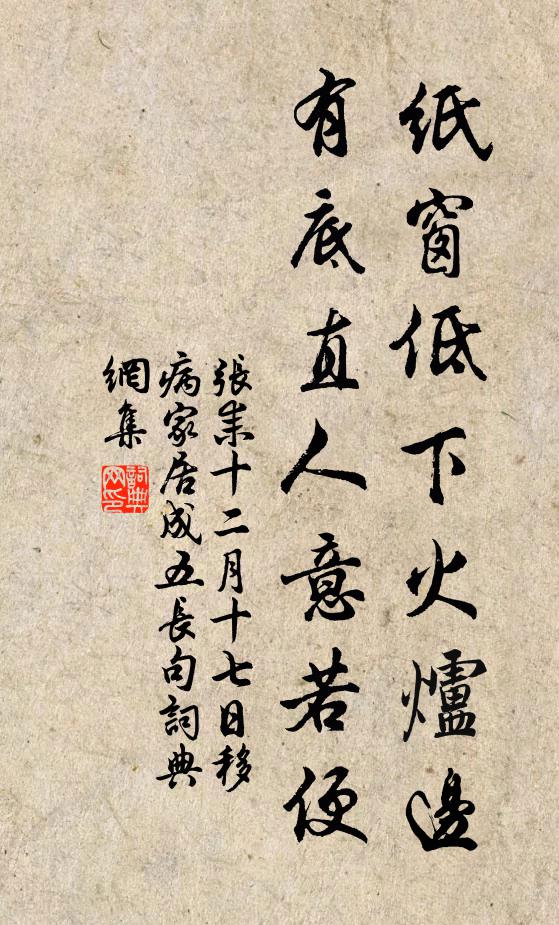 紙窗低下火爐邊
有底直人意若便
張耒十二月十七日移
病家居成五長句詞典
網集
詞典網印